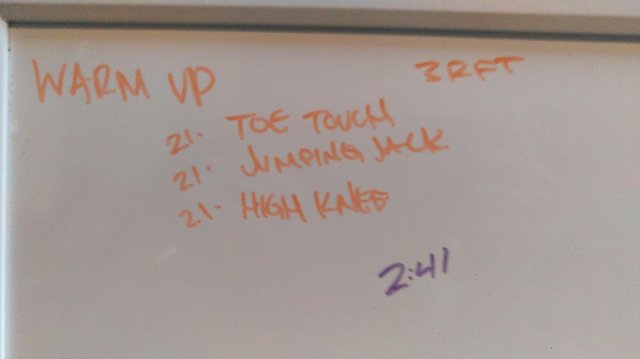 WARM UP 3 RFT
21· TOE TOUCH
21· JUMPING JACK
21· HIGH KNEE
2:41